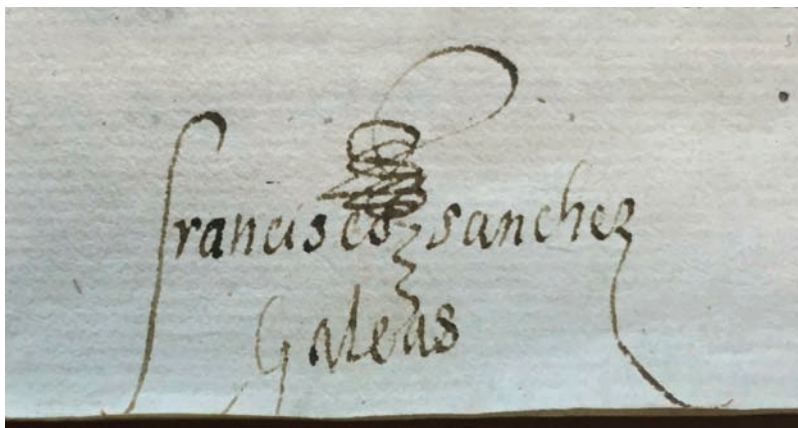 francisco sanchez
Galeas